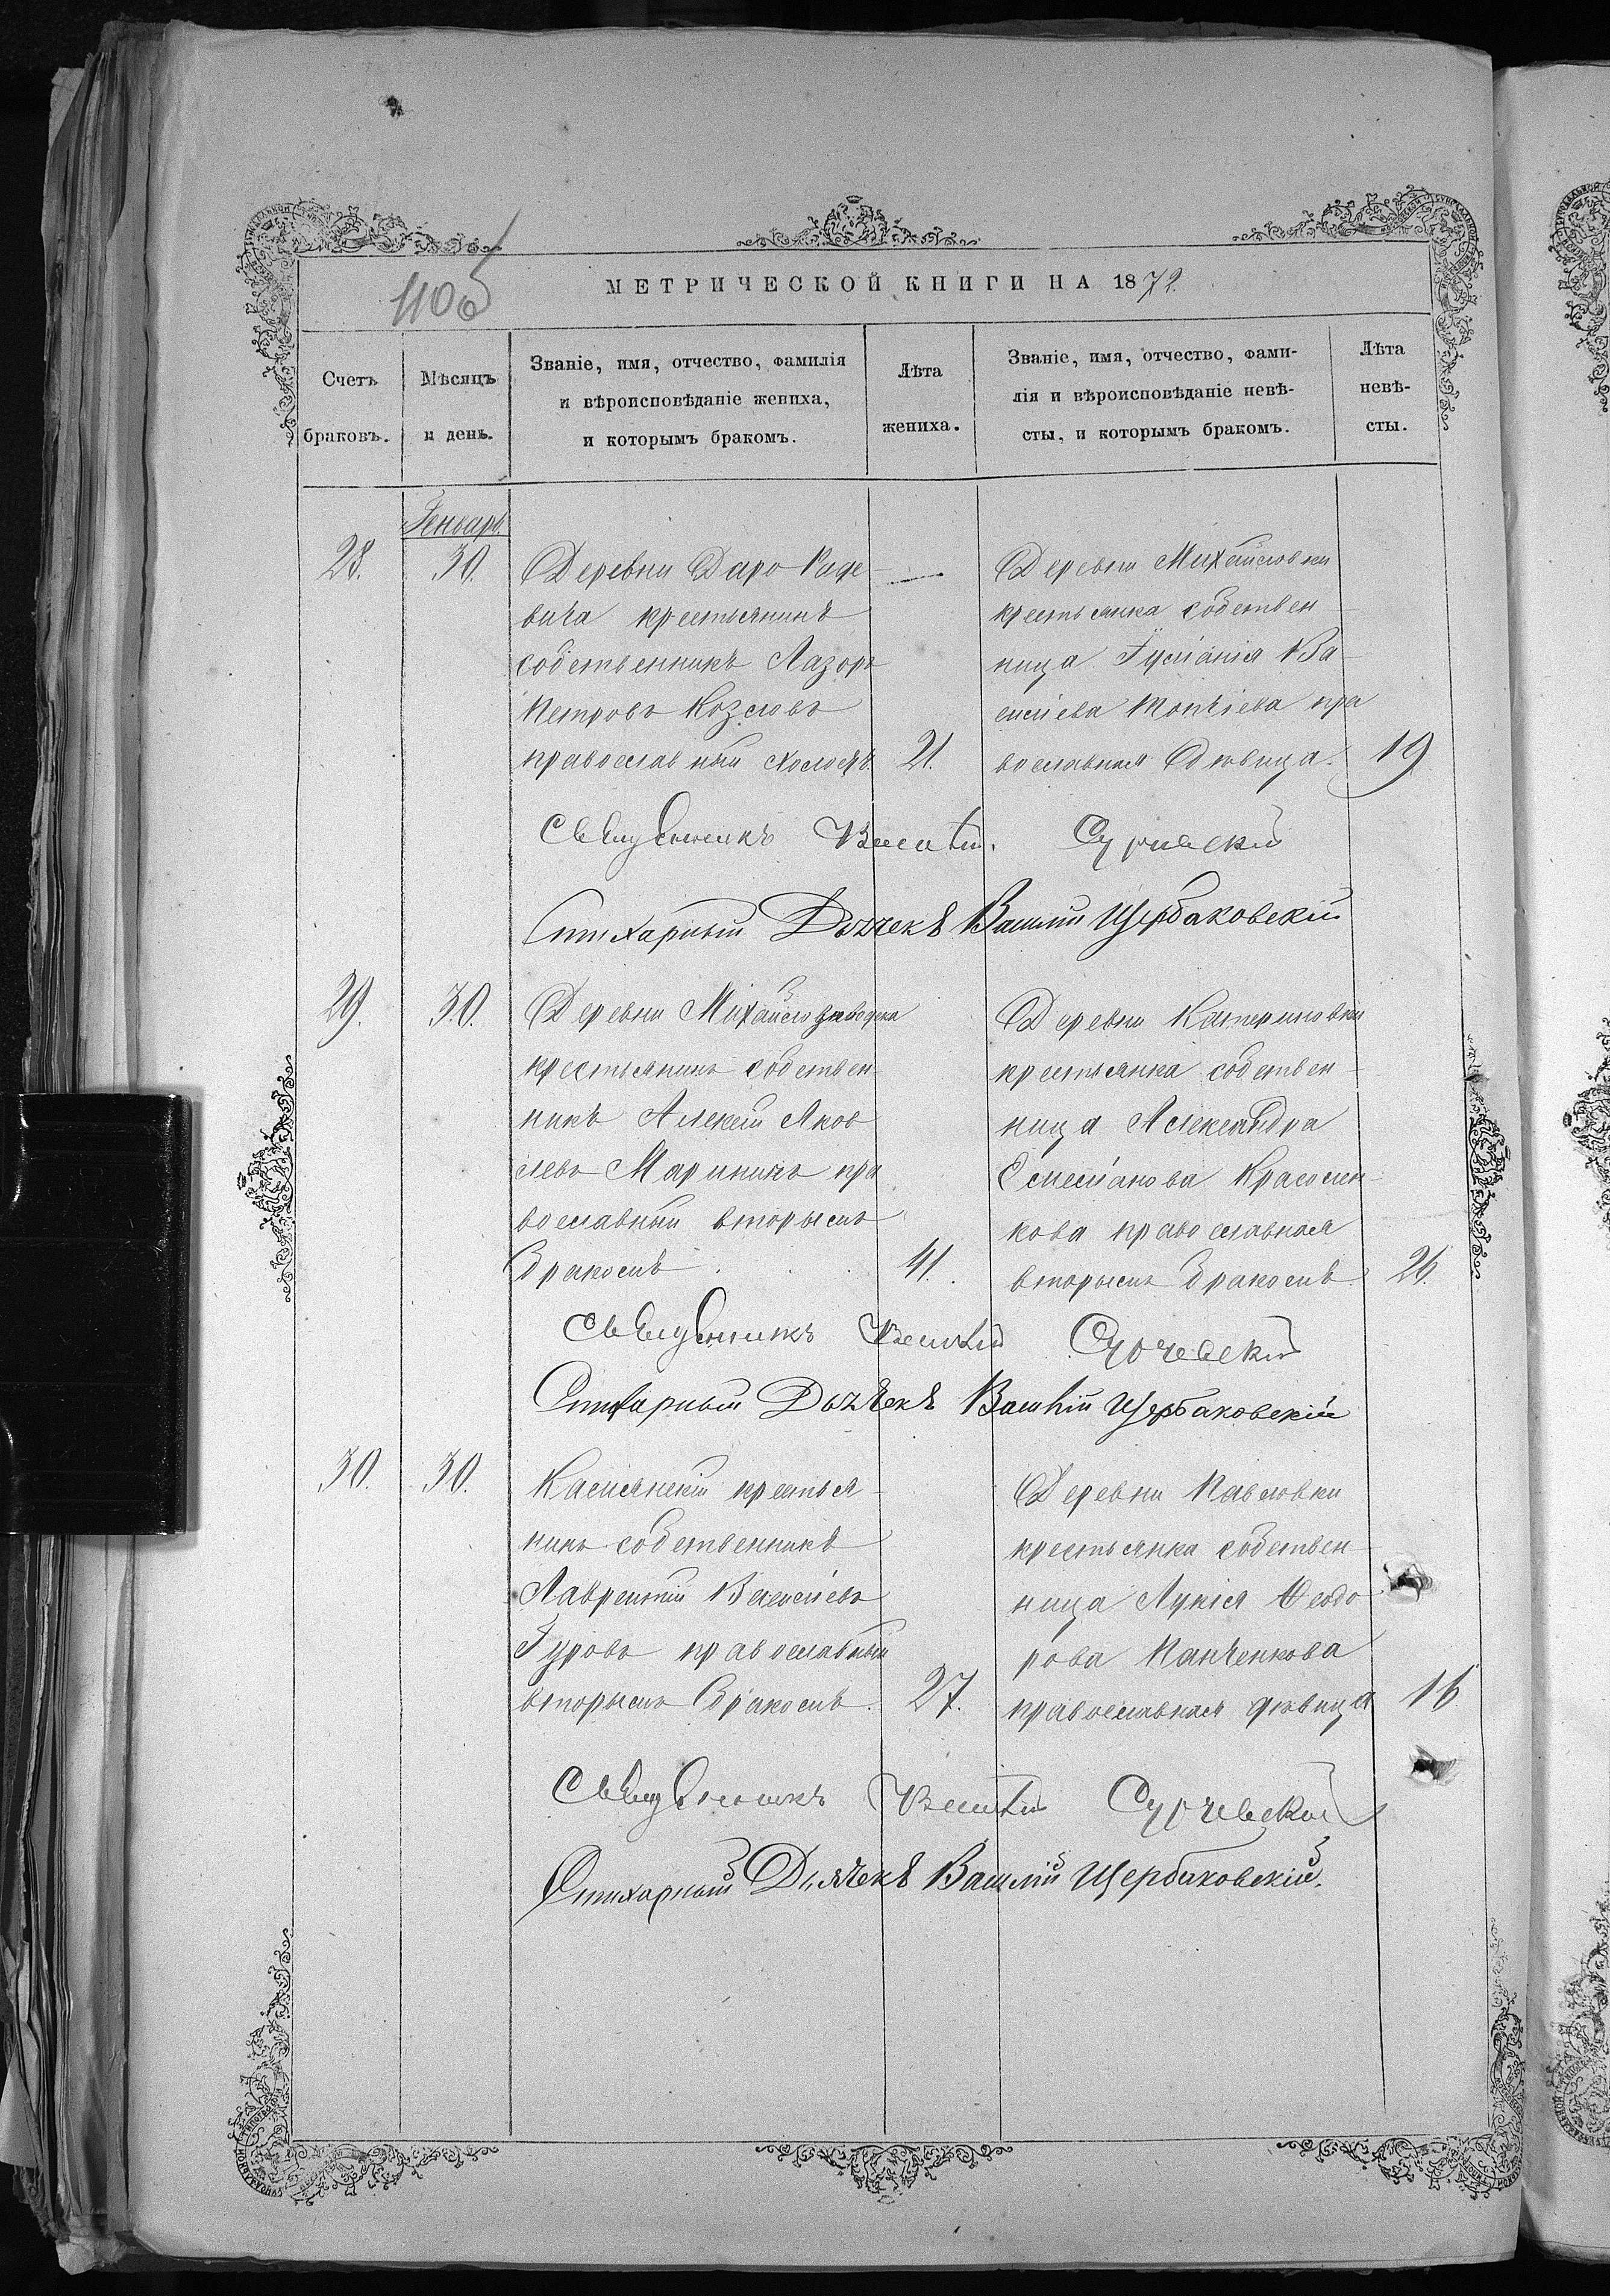 110 об
МЕТРИЧЕСКОЙ КНИГИ НА 1872
Счетъ браковъ.
Мѣсяцъ и день.
Званіе, имя, отчество, фамилія
и вѣроисповѣданіе жениха,
и которымъ бракомъ.
Лѣта жениха.
Званіе, имя, отчество, фами-
лія и вѣроисповѣданіе невѣ-
сты, и которымъ бракомъ.
Лѣта невѣ-
сты.
Генварь.
28. 30.
Деревни Даро Каде-
вича крестьянинъ
собственникъ Лазорь
Петровъ Козловъ
православный холостъ. 21.
Деревни Михайловки
крестьянка собствен-
ница Іуліанія Ва-
силіева Топчіева пра
вославная дѣвица. 19
Священникъ Василій Сурчевскій
Стихарный Дьячекъ Василій Щербаковскій
29. 30.
Деревни Михайло
крестьянинъ собствен-
никъ Алексій Яков
левъ Мариничъ пра
вославный вторымъ
бракомъ 41.
Деревни Катериновки
крестьянка собствен-
ница Александра
Емеліанова Красолен-
кова православная
вторымъ бракомъ 26.
Священникъ Василій Сурчевскій
Стихарный Дьячекъ Василій Щербаковскій
30. 30.
Касиянскій крестья-
нинъ собственникъ
Лаврентій Василіевъ
Гуровъ православный
вторымъ бракомъ. 27.
Деревни Павловки
крестьянка собствен-
ница Лукія Ѳеодо-
рова Панченкова
православная дѣвица 16
Священникъ Василій Сурчевскій
Стихарный Дьячекъ Василій Щербаковскій.